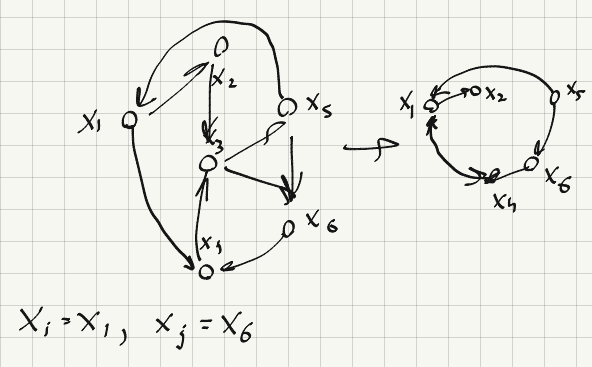 x₂
x₁
x₅
x₃
x₆
x₄
x₁
x₂
x₅
x₆
x₄
xᵢ = x₁, xⱼ = x₆